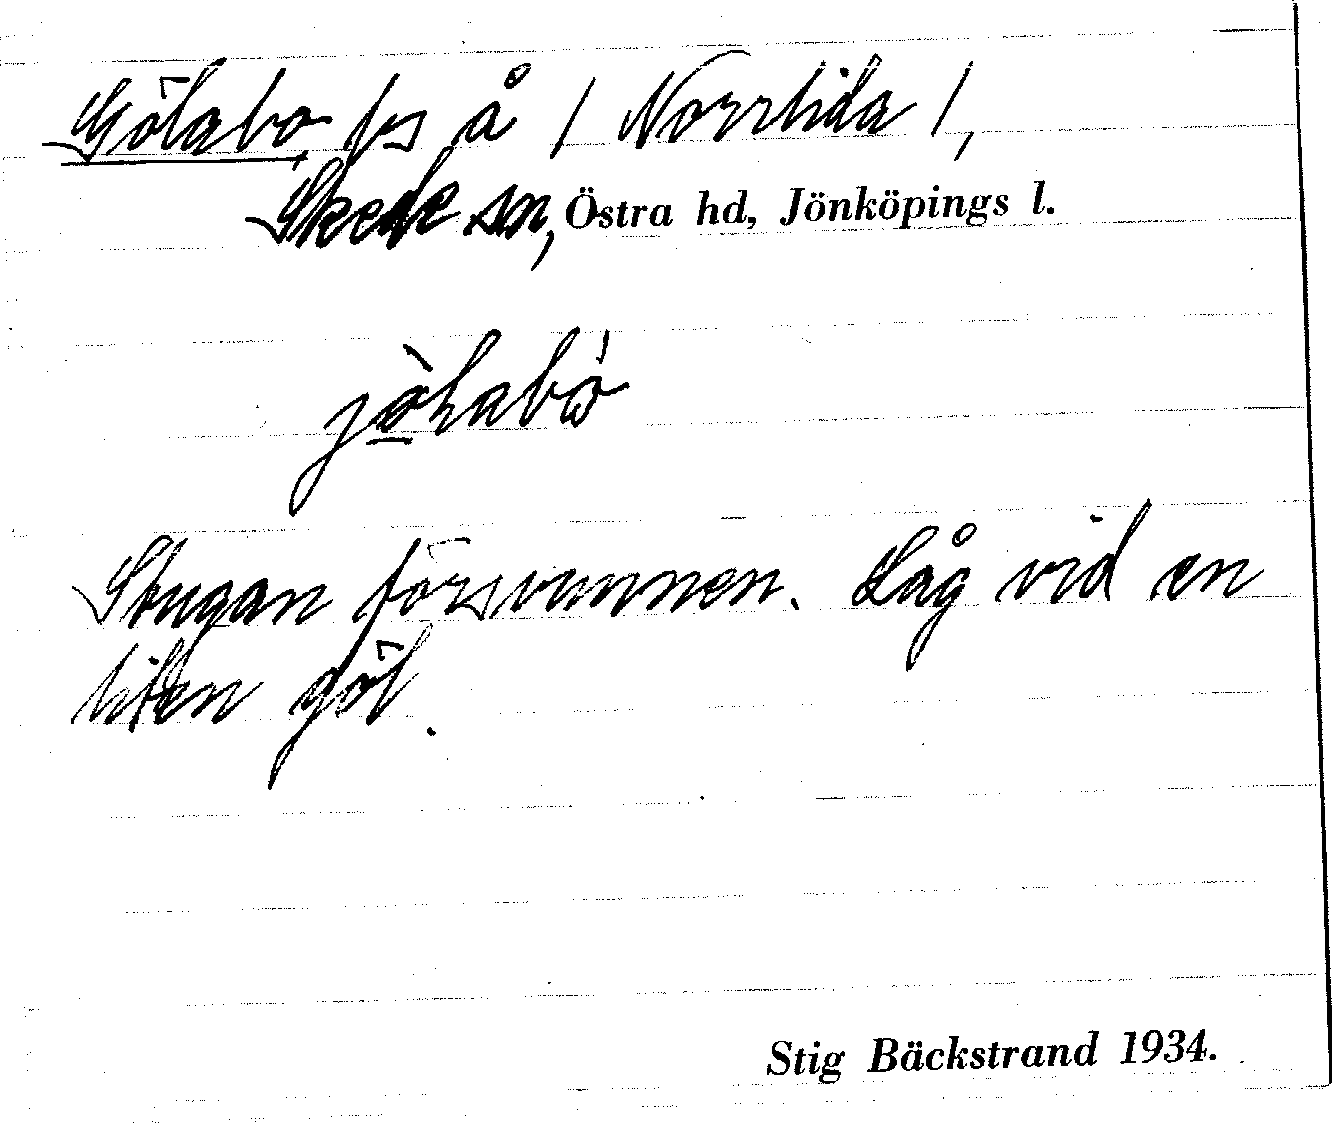 Gölabo fs å / Norrlida /,
Skede sn, Östra hd, Jönköpings l.
jölabò
Stugan försvunnen. Låg vid en
liten göl.
Stig Bäckstrand 1934.